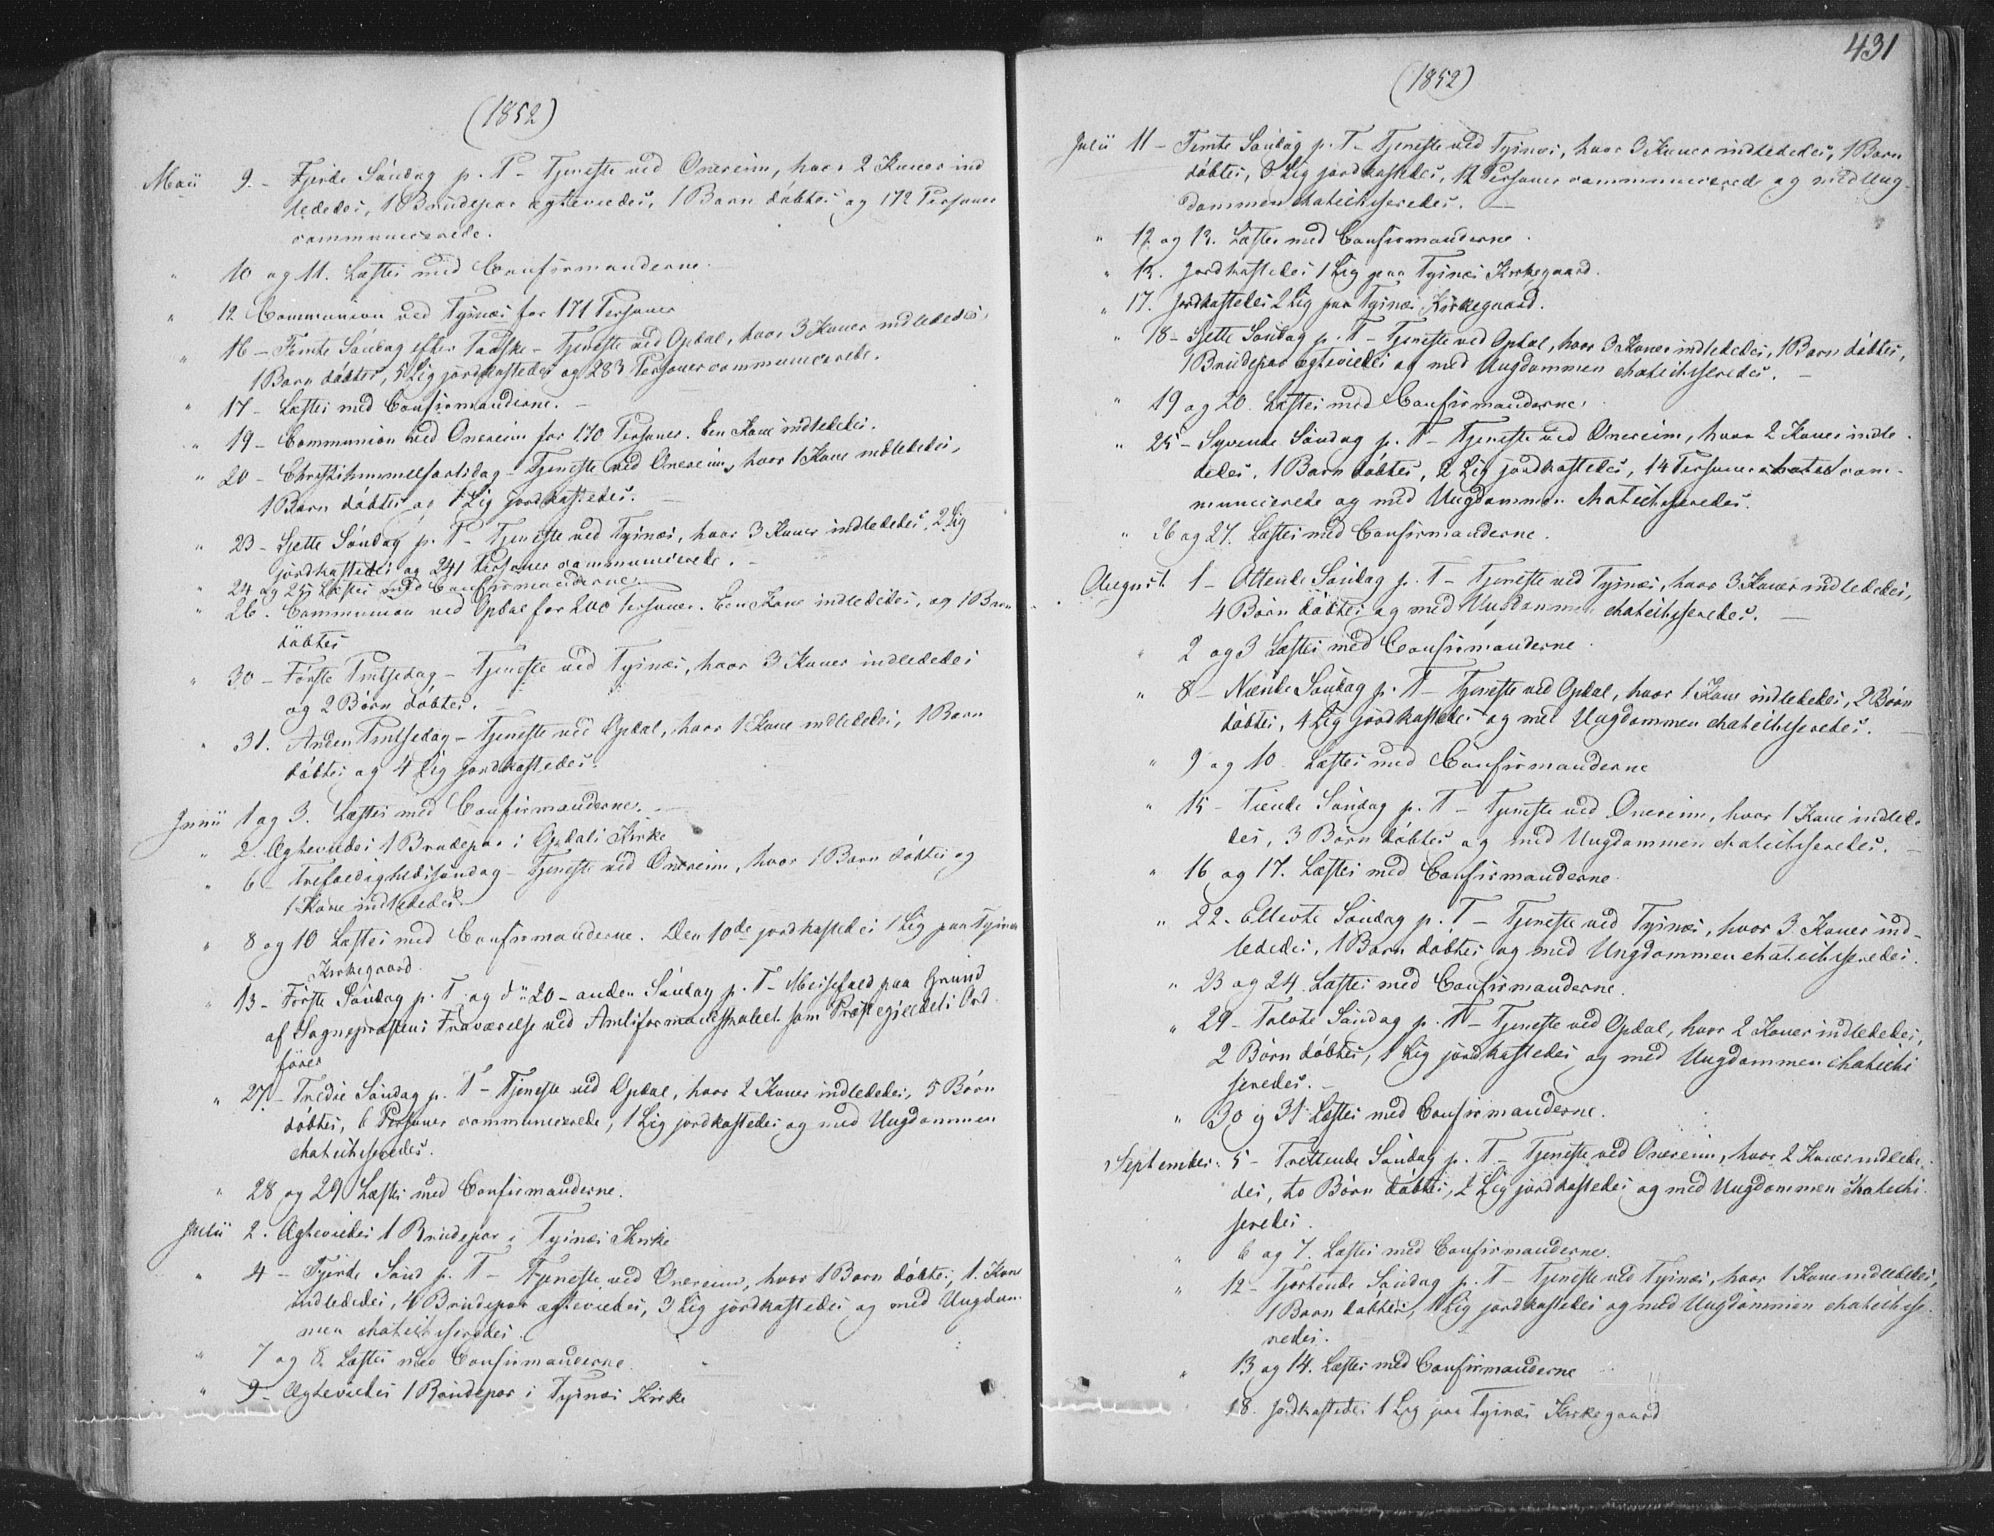 (1852)
Maii 9. - Fjerde Söndag p. P - Tjeneste ved Onereim, hvor 2 Koner ind
lededes, 1 Brudepar ægteviedes, 1 Barn döbtes og 172 Personer
communicerede.
" 10 og 11. Læstes med Confirmanderne.
" 12 Communion ved Tysnæs for 171 Personer
" 16 - Femte Söndag efter Paaske - Tjeneste ved Opdal, hvor 3 Koner indlededes,
1 Barn döbtes, 5 Lig jordkastedes og 283 Personer communicerede.
" 17 - Læstes med Confirmanderne. -
" 19 - Communion ved Onereim for 170 Personer. Een Kone indlededes.
" 20 - Christihimmelfartsdag - Tjeneste ved Onereim, hvor 1 Kone indlededes,
1 Barn döbtes og 1 Lig jordkastedes. -
" 23 - Sjette Söndag p. P - Tjeneste ved Tysnæs, hvor 3 Koner indlededes, 2 Lig
jordkastedes og 241 Personer communicerede. -
" 24 og 25 Læstes med Confirmanderne.
" 26. Communion ved Opdal for 200 Personer. Een Kone indlededes, og 1 Barn
döbtes
" 30 - Förste Pintsedag - Tjeneste ved Tysnæs, hvor 3 Koner indlededes
og 2 Börn döbtes. -
" 31. Anden Pintsedag - Tjeneste ved Opdal, hvor 1 Kone indlededes, 1 Barn
döbtes og 4 Lig jordkastedes.
Junii 1 og 3. Læstes med Confirmanderne. -
" 2. Ægteviedes 1 Brudepar i Opdals Kirke
" 6 - Trefoldighedssöndag - Tjeneste ved Onereim, hvor 1 Barn döbtes og
1 Kone indlededes.
" 8 og 10 Læstes med Confirmanderne. Den 10de jordkastedes 1 Lig paa Tysnæs
Kirkegaard.
" 13 - Förste Söndag p. T og d" 20 - anden Söndag p. T - Messefald paa Grund
af Sognepræstens Fraværelse ved Amtsformandskabet som Præstegjeldets Ord
förer
" 27. - Tredie Söndag p. T - Tjeneste ved Opdal, hvor 2 Koner indlededes, 5 Börn
döbtes, 6 Personer communicerede, 1 Lig jordkastedes og med Ungdommen
chatechiseredes.
" 28 og 29 Læstes med Confirmanderne.
Julii 2. Ægteviedes 1 Brudepar i Tysnæs Kirke
" 4 - Fjerde Sönd p. T - Tjeneste ved Onereim, hvor 1 Barn döbtes, 1. Kone
indlededes, 4 Brudepar ægteviedes, 3 Lig jordkastedes og med Ungdom
men chatechiseredes.
" 7 og 8. Læstes med Confirmanderne.
" 9 - Ægteviedes 1 Brudepar i Tysnæs Kirke
431
(1852)
Julii 11 - Femte Söndag p. T - Tjeneste ved Tysnæs, hvor 3 Koner indlededes, 1 Barn
döbtes, 8 Lig jordkastedes, 12 Personer communicerede og med Ung-
dommen chatechiseredes. -
" 12 og 13. Læstes med Confirmanderne.
" 13. Jordkastedes 1 Lig paa Tysnæs Kirkegaard.
" 17. Jordkastedes 2 Lig paa Tysnæs Kirkegaard.
" 18 - Sjette Söndag p. T - Tjeneste ved Opdal, hvor 3 Koner indlededes, 1 Barn döbtes,
1 Brudepar ægteviedes og med Ungdommen chatechiseredes. -
" 19 og 20. Læstes med Confirmanderne.
" 25 - Syvende Söndag p. T - Tjeneste ved Onereim, hvor 2 Koner indle-
dedes, 1 Barn döbtes, 2 Lig jordkastedes, 14 Personer com-
municerede og med Ungdommen chatechiseredes.
" 26 og 27. Læstes med Confirmanderne.
August 1 - Ottende Söndag p. T - Tjeneste ved Tysnæs, hvor 3 Koner indlededes,
4 Börn döbtes og med Ungdommen chatechiseredes. -
" 2 og 3 Læstes med Confirmanderne.
" 8 - Niende Söndag p. T - Tjeneste ved Opdal, hvor 1 Kone indlededes, 2 Börn
döbtes, 4 Lig jordkastedes og med Ungdommen chatechiseredes. -
" 9 og 10. Læstes med Confirmanderne
" 15 - Tiende Söndag p. T - Tjeneste ved Onereim, hvor 1 Kone indlede-
des, 3 Börn döbtes og med Ungdommen chatechiseredes. -
" 16 og 17. Læstes med Confirmanderne.
" 22. Ellevte Söndag p. T - Tjeneste ved Tysnæs, hvor 3. Koner ind-
lededes, 1 Barn döbtes og med Ungdommen chatechiseredes.
" 23 og 24. Læstes med Confirmanderne.
" 29 - Tolvte Söndag p. T - Tjeneste ved Opdal, hvor 2 Koner indlededes,
2 Börn döbtes, 1 Lig jordkastedes og med Ungdommen chatechi
seredes. -
" 30 og 31 Læstes med Confirmanderne.
September. 5 - Trettende Söndag p. T - Tjeneste ved Onereim, hvor 2 Koner indlede-
des, to Börn döbtes, 2 Lig jordkastedes og med Ungdommen chatechi
seredes.
" 6 og 7. Læstes med Confirmanderne.
" 12 - Fjortende Söndag p. T - Tjeneste ved Tysnæs, hvor 1 Kone indlededes,
1 Barn döbtes, 1 Lig jordkastedes og med Ungdommen chatechise-
redes.
" 13 og 14. Læstes med Confirmanderne
18. Jordkastedes 1 Lig paa Tysnæs Kirkegaard